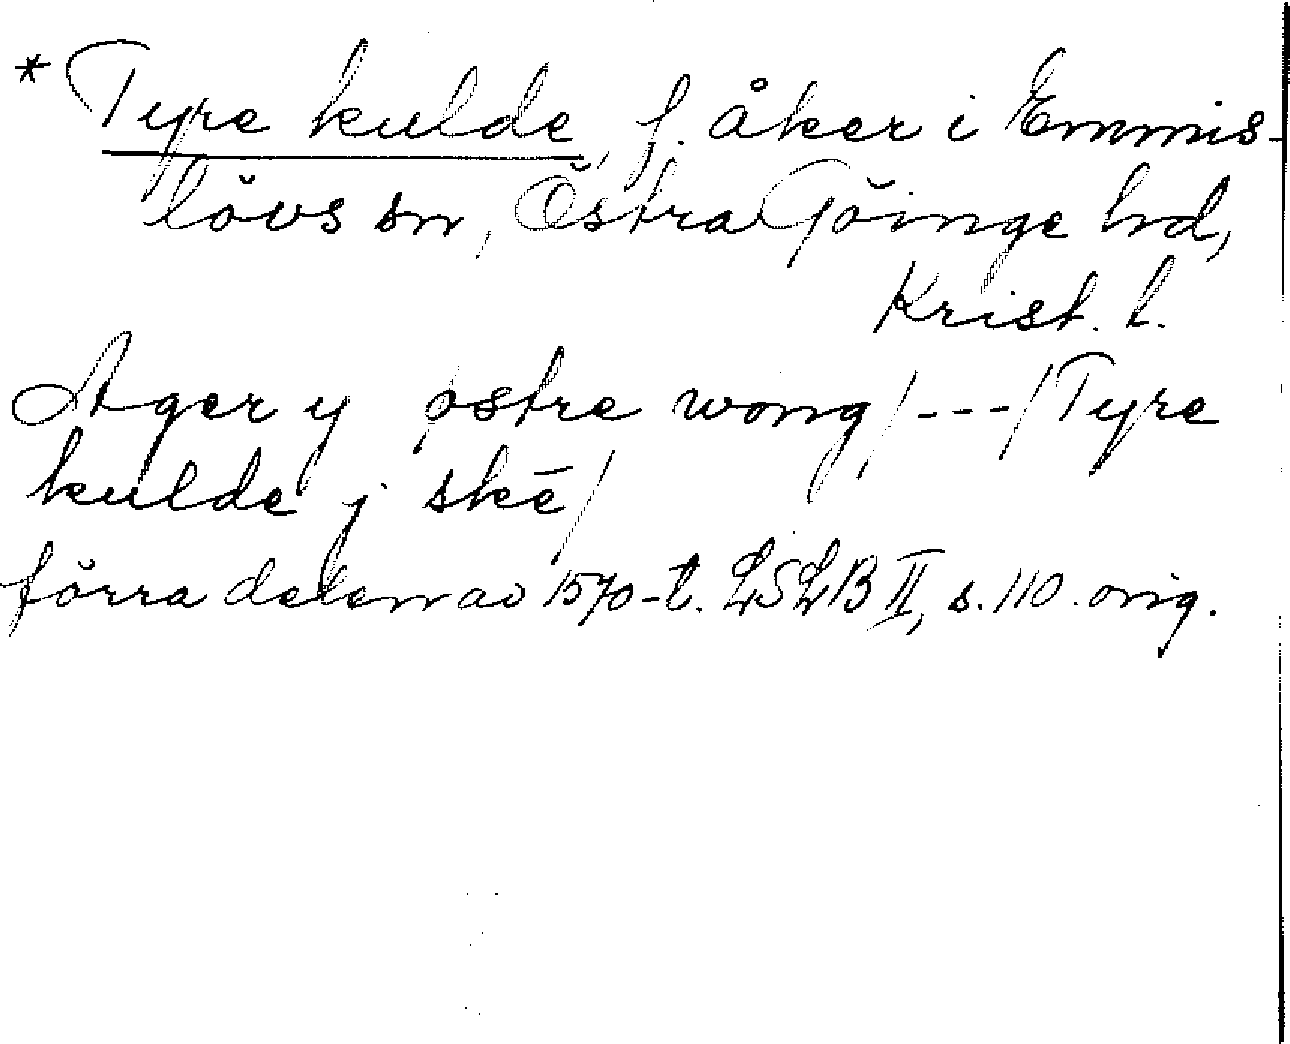 * Tyre kulde, f. åker i Emmis-
lövs sn, Östra Göinge hd,
Krist. l.
Ager y østre wong/---/Tyre
kulde j skē/
förra delen av 1570-t. LSLB II, s. 110. orig.